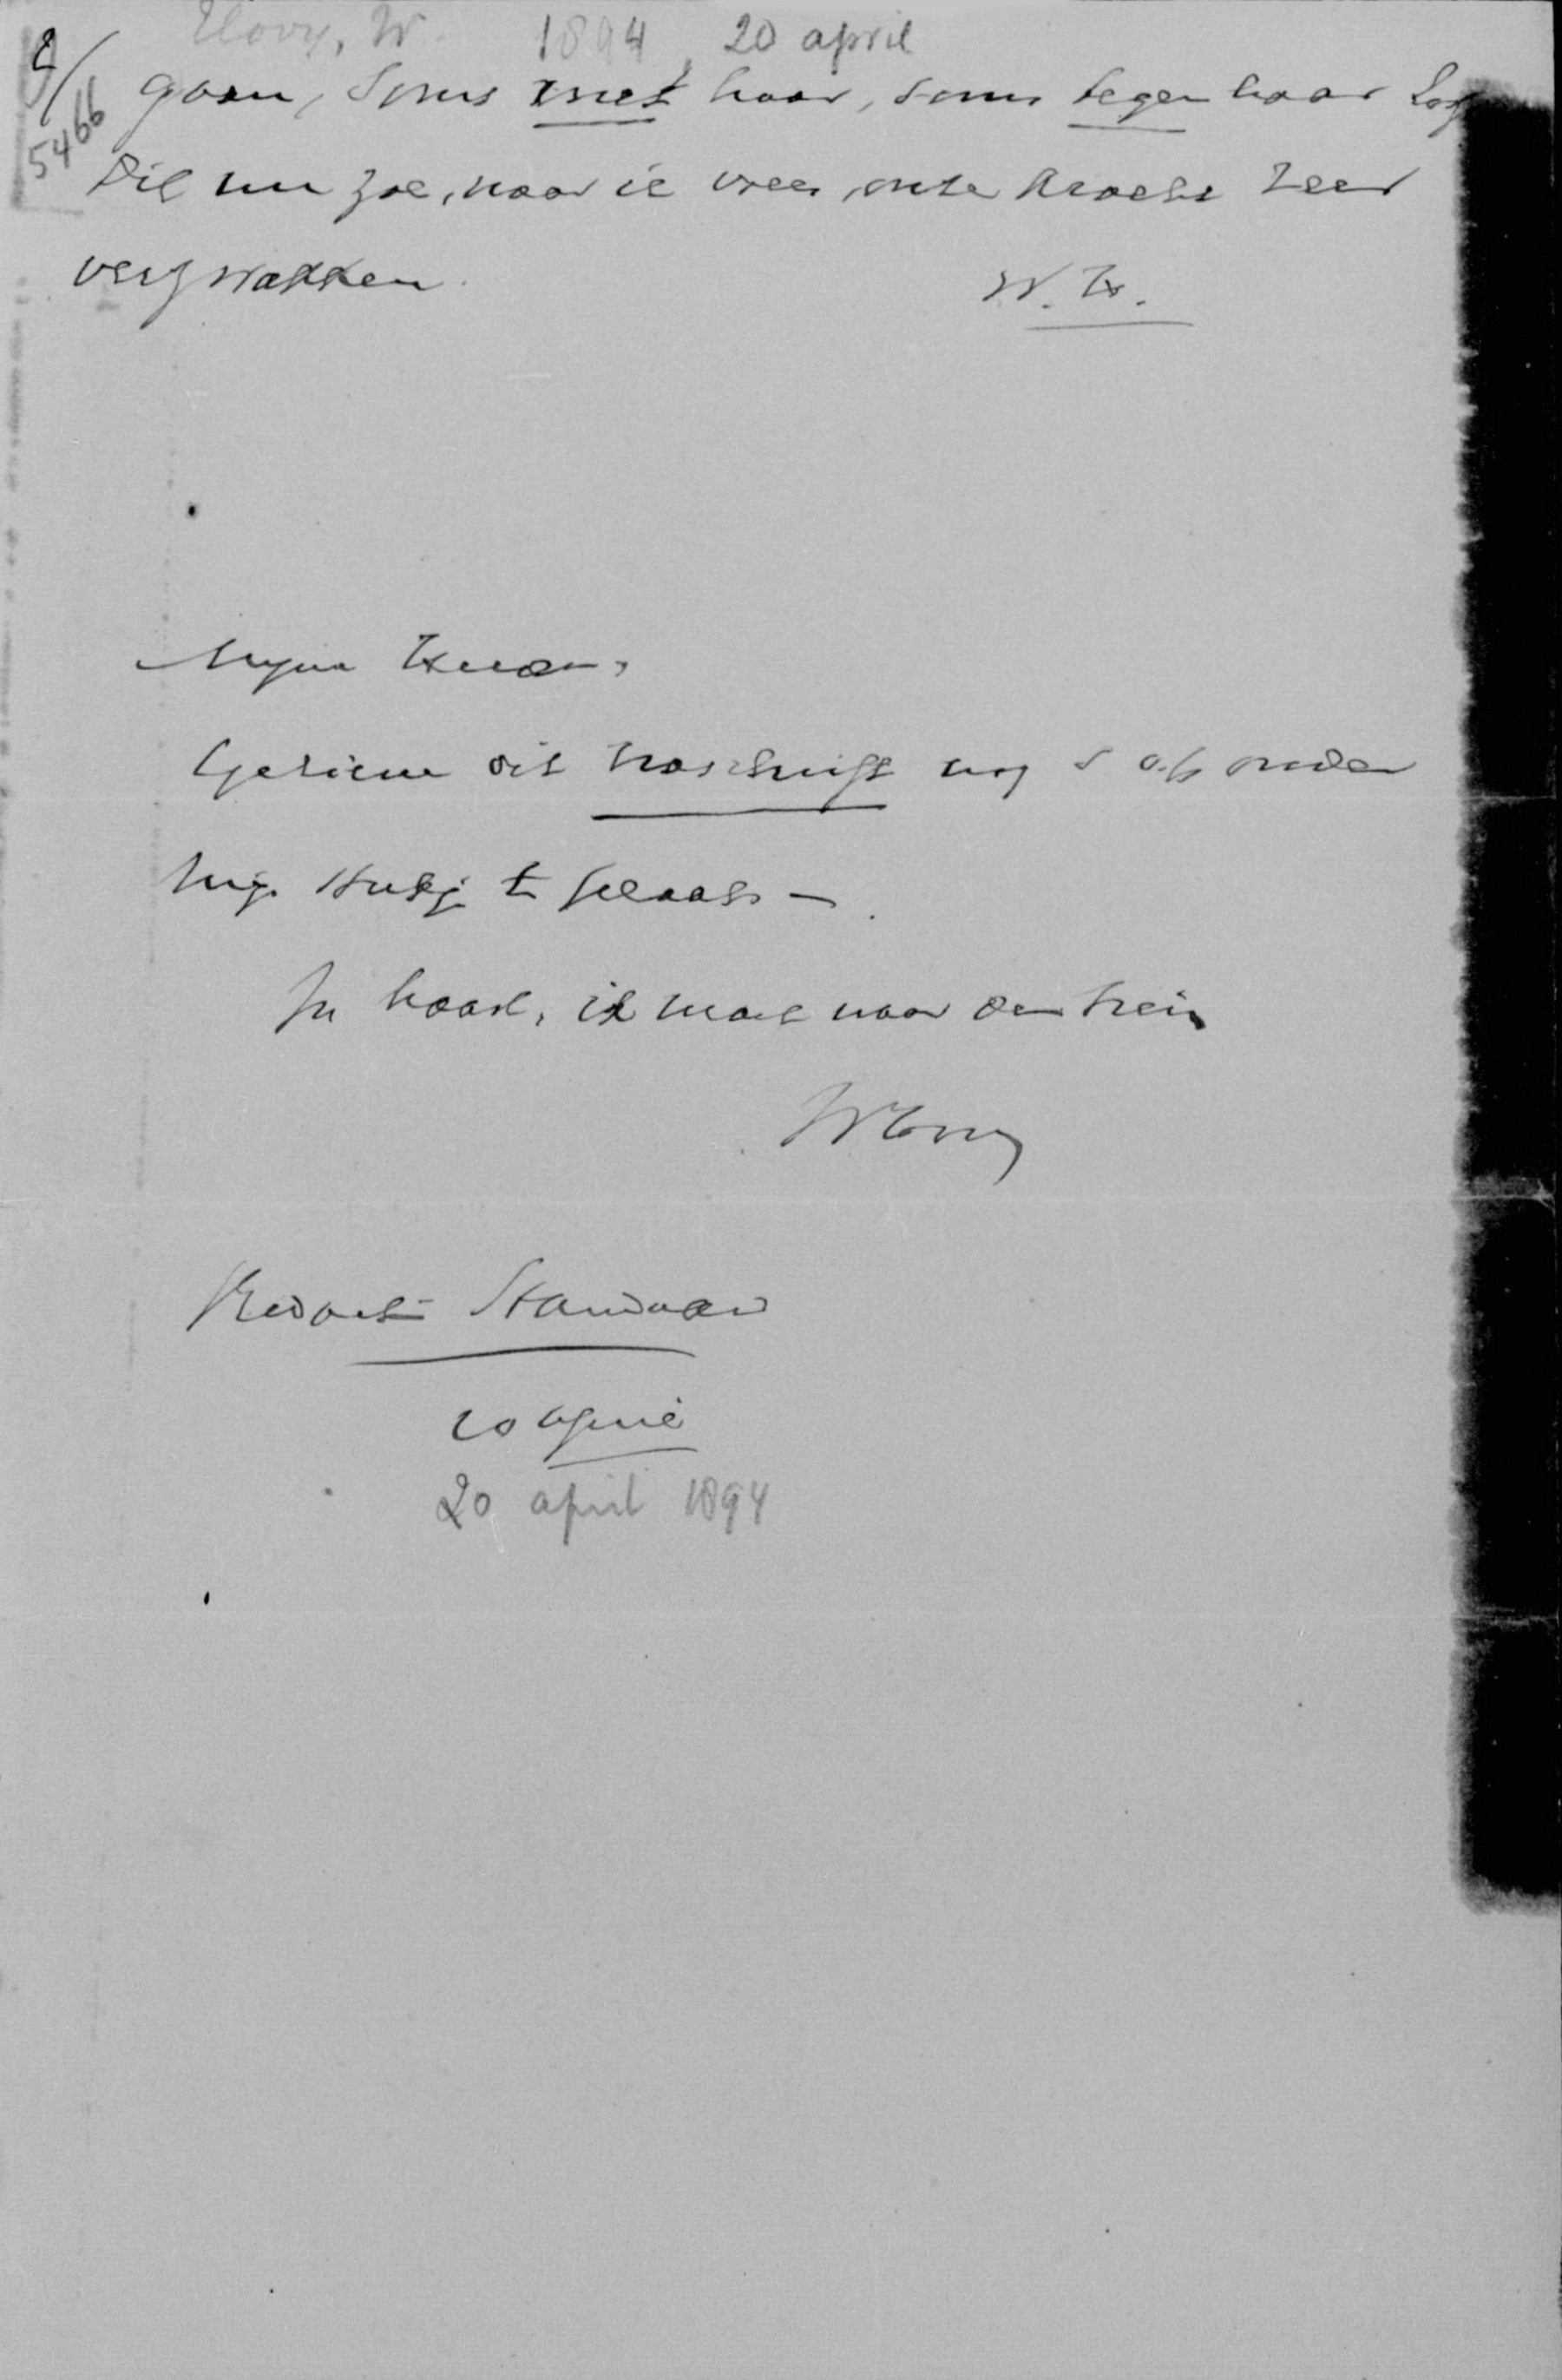 Hovy, W. 1894, 20 april
5466
gaan, soms met haar, soms tegen haar
Dit nu zal, naar ik vrees, onze kracht zeer
verzwakken.
W. H.
Mijne Heeren,
Gelieve dit naschrift nog s.v.p. onder
mijn stukje te plaatsen.
In haast, ik moet naar den trein
WHovy
Redactie Standaard
20 april
20 april 1894